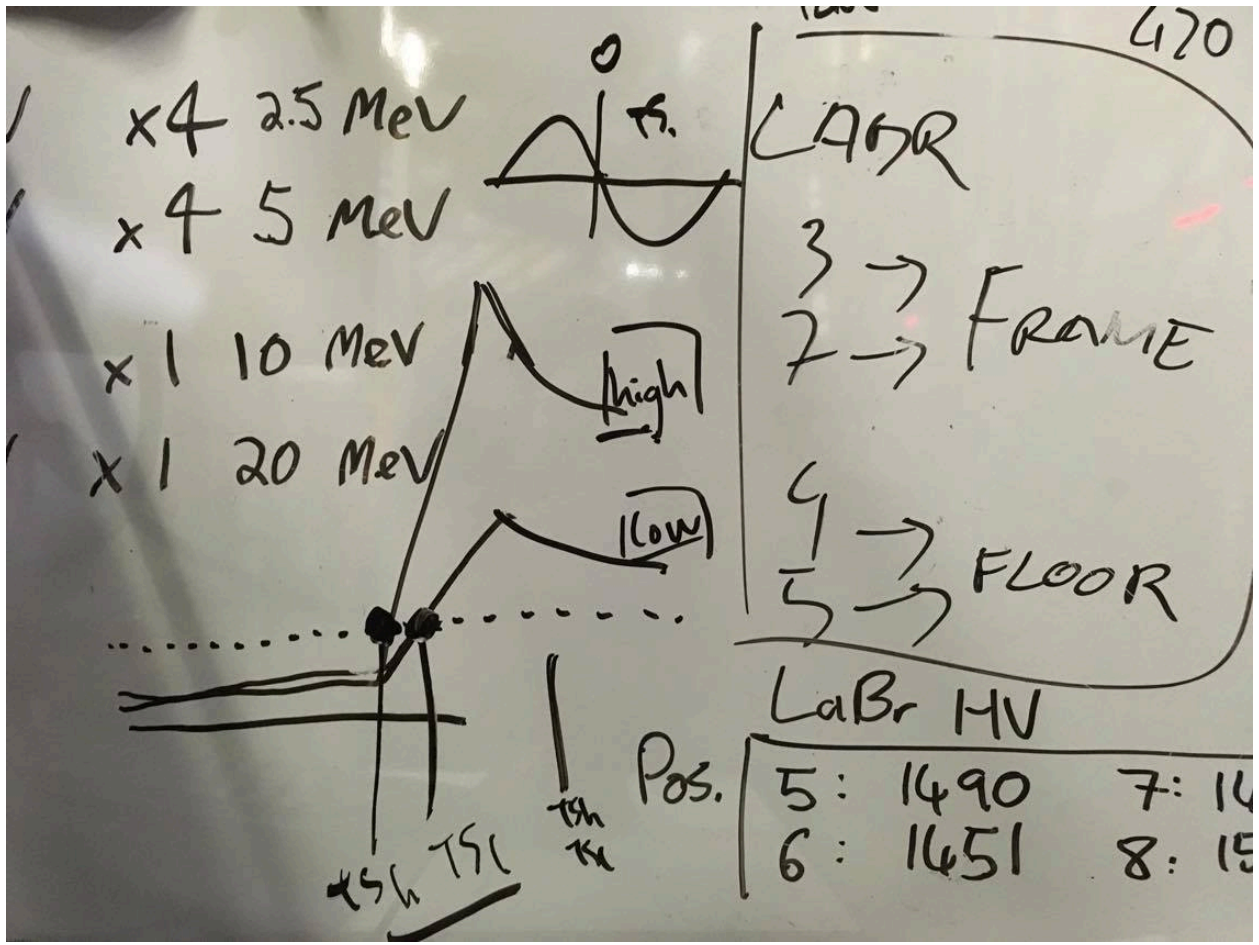 x4 2.5 MeV
x4 5 MeV
x1 10 MeV
x1 20 MeV
0
TS.
high
low
TSh TSl
TSh
TSl
420
LABR
3 →
7 → FRAME
4 →
5 → FLOOR
LaBr HV
Pos. 5: 1490 7: 14
6: 1451 8: 15